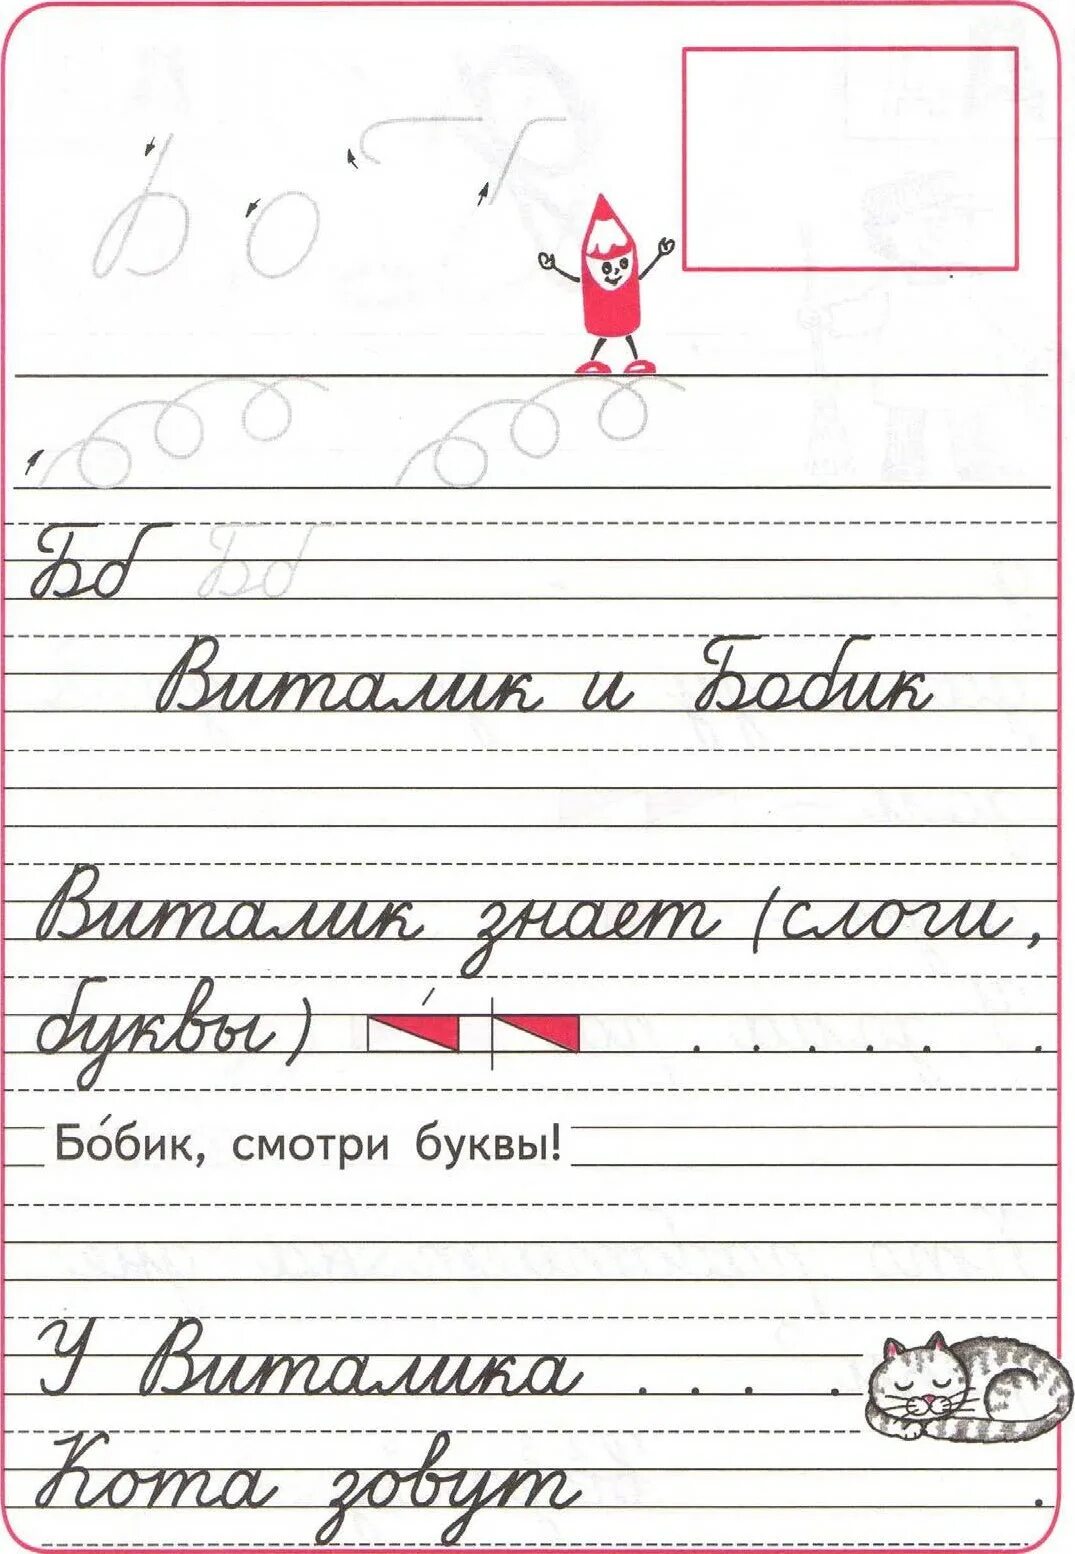 Бб Бб
Виталик и Бобик
Виталик знает (слоги,
буквы) . . . . . .
Бо́бик, смотри буквы!
У Виталика . . . .
Кота зовут .